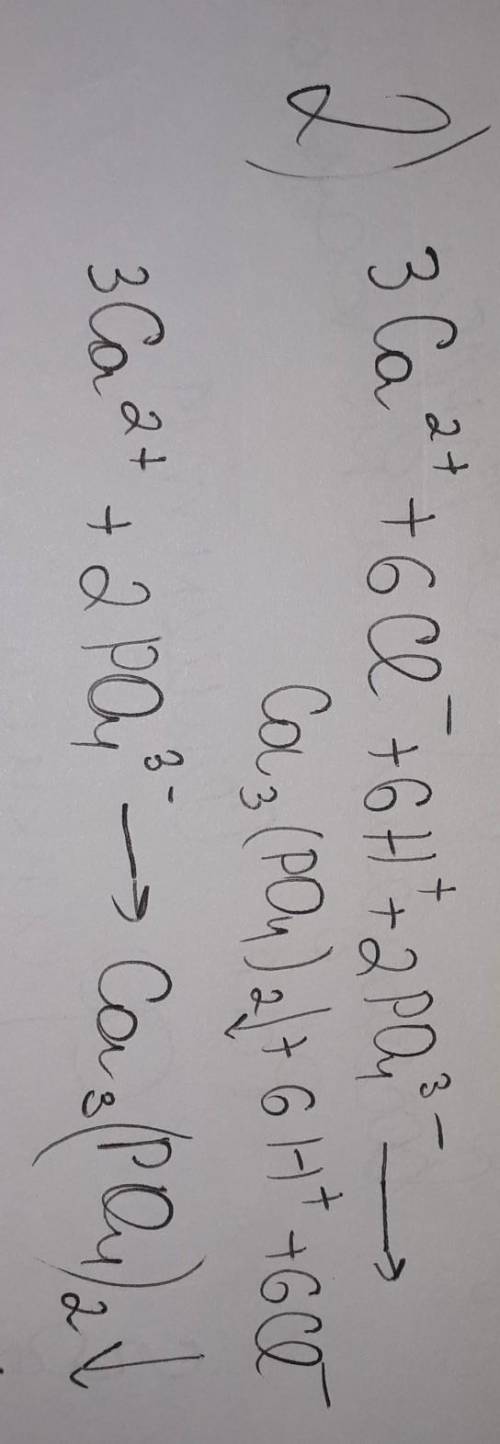 2) 3Ca²⁺ + 6Cl⁻ + 6H⁺ + 2PO₄³⁻ →
Ca₃(PO₄)₂↓ + 6H⁺ + 6Cl⁻
3Ca²⁺ + 2PO₄³⁻ → Ca₃(PO₄)₂↓